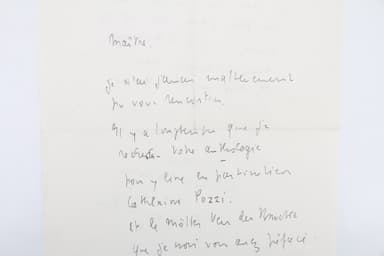 Maître.
je n'ai jamais matériellement
pu vous rencontrer.
Il y a longtemps que je
recherche votre anthologie
pour y lire en particulier
Catherine Pozzi.
et le
que je vous avez préfacé.